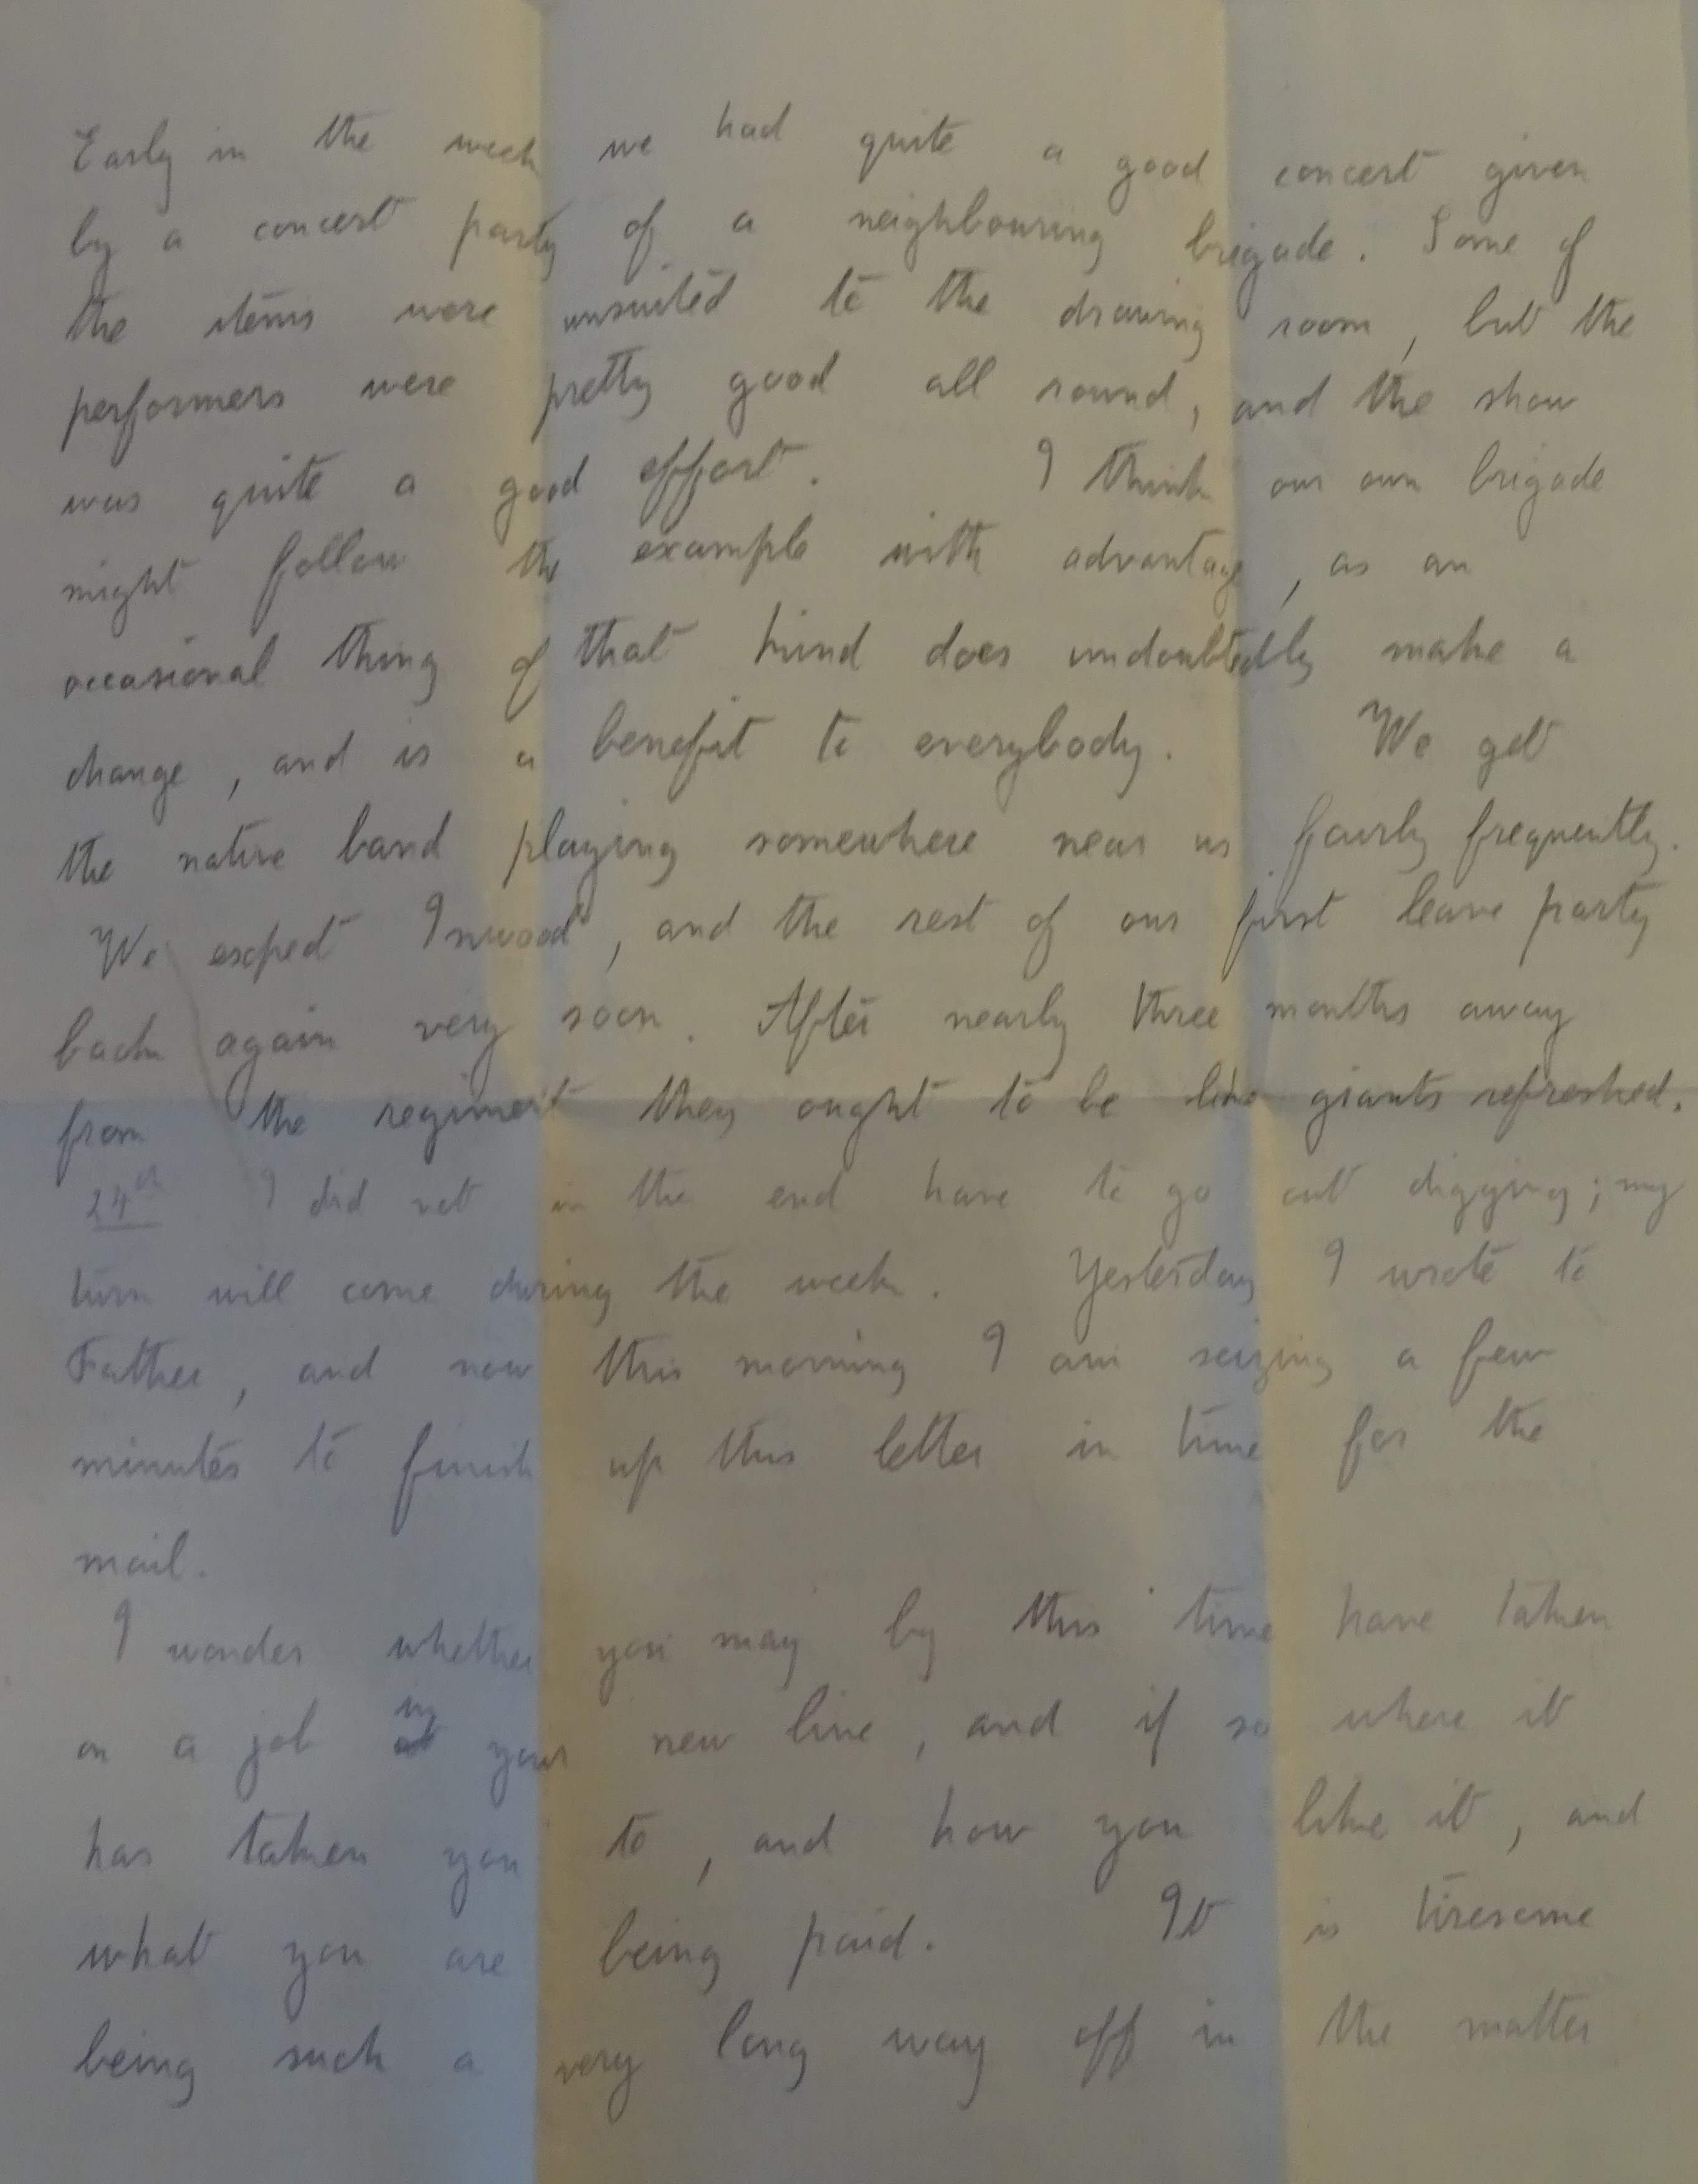 Early in the week we had quite a good concert given
by a concert party of a neighbouring brigade. Some of
the items were unsuited to the drawing room, but the
performers were pretty good all round, and the show
was quite a good effort. I think our own brigade
might follow the example with advantage, as an
occasional thing of that kind does undoubtedly make a
change, and is a benefit to everybody. We get
the native band playing somewhere near us fairly frequently.
We expect Inwood, and the rest of our first leave party
back again very soon. After nearly three months away
from the regiment they ought to be like giants refreshed.
24th I did not in the end have to go out digging; my
turn will come during the week. Yesterday I wrote to
Father, and now this morning I am seizing a few
minutes to finish up this letter in time for the
mail.
I wonder whether you may by this time have taken
in
on a job at your new line, and if so where it
has taken you to, and how you like it, and
what you are being paid. It is tiresome
being such a very long way off in the matter